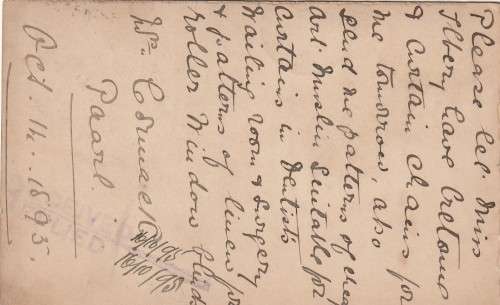 Please let Miss
Ilbery have Cretonne
& Curtain Chains for
me tomorrow, also
send me patterns of cheap
Art Muslin suitable for
Curtains in Dentists
Waiting room & Surgery
& patterns of linen for
roller Window blinds
Wm Cormack
Paarl
Oct. 14. 1895.